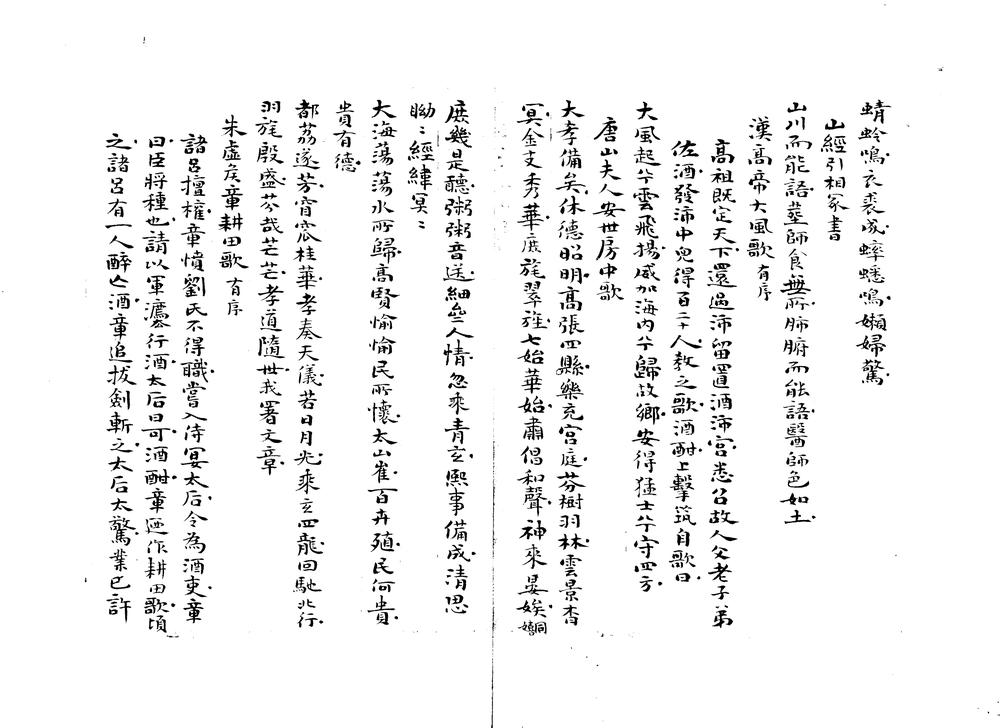 蜻蛉鳴衣裘成蟋蟀鳴嬾婦驚
山經引相冢書
山川而能語葬師食無所肺腑而能語醫師色如土
漢高帝大風歌有序
高祖既定天下還過沛留置酒沛宮悉召故人父老子弟
佐酒發沛中兒得百二十人教之歌酒酣上擊筑自歌曰
大風起兮雲飛揚威加海內兮歸故鄉安得猛士兮守四方
唐山夫人安世房中歌
大孝備矣休德昭明高張四縣樂充宮庭芬樹羽林雲景杳
冥金支秀華庶旄翠旌七始華始肅倡和聲神來晏娭嬉同
庶幾是聽粥粥音送細𠫵人情忽乘青玄熙事備成清思
眑〻經緯冥〻
大海蕩蕩水所歸高賢愉愉民所懷太山崔百卉殖民何貴
貴有德
都荔遂芳窅窊桂華孝奏天儀若日月光乘玄四龍回馳北行
羽旄殷盛芬哉芒芒孝道隨世我署文章
朱虛矦章耕田歌有序
諸呂擅權章憤劉氏不得職嘗入侍宴太后令為酒吏章
曰臣將種也請以軍灋行酒太后曰可酒酣章迺作耕田歌頃
之諸呂有一人醉亡酒章追拔劍斬之太后太驚業已許